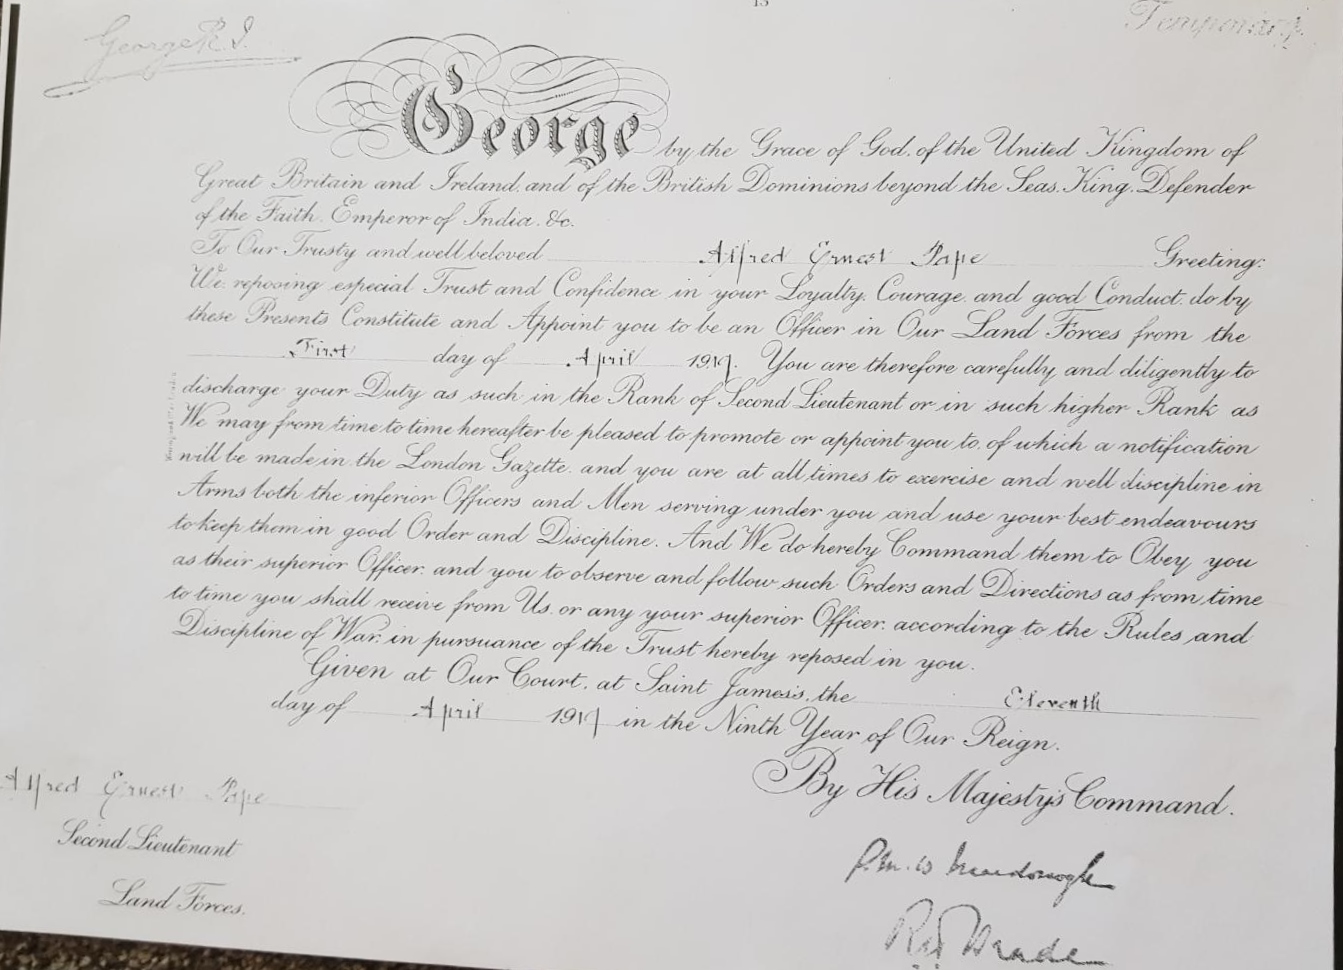 George R. I.
Temporary.
George by the Grace of God, of the United Kingdom of
Great Britain and Ireland, and of the British Dominions beyond the Seas, King, Defender
of the Faith, Emperor of India, &c.
To Our Trusty and well beloved Alfred Ernest Pape Greeting:
We, reposing especial Trust and Confidence in your Loyalty, Courage, and good Conduct, do by
these Presents Constitute and Appoint you to be an Officer in Our Land Forces from the
First day of April 1919. You are therefore carefully and diligently to
discharge your Duty as such in the Rank of Second Lieutenant or in such higher Rank as
We may from time to time hereafter be pleased to promote or appoint you to, of which a notification
will be made in the London Gazette, and you are at all times to exercise and well discipline in
Arms both the inferior Officers and Men serving under you and use your best endeavours
to keep them in good Order and Discipline. And We do hereby Command them to Obey you
as their superior Officer, and you to observe and follow such Orders and Directions as from time
to time you shall receive from Us, or any your superior Officer, according to the Rules and
Discipline of War, in pursuance of the Trust hereby reposed in you.
Given at Our Court, at Saint James's, the Eleventh
day of April 1919 in the Ninth Year of Our Reign.
By His Majesty's Command.
Alfred Ernest Pape
Second Lieutenant
Land Forces.